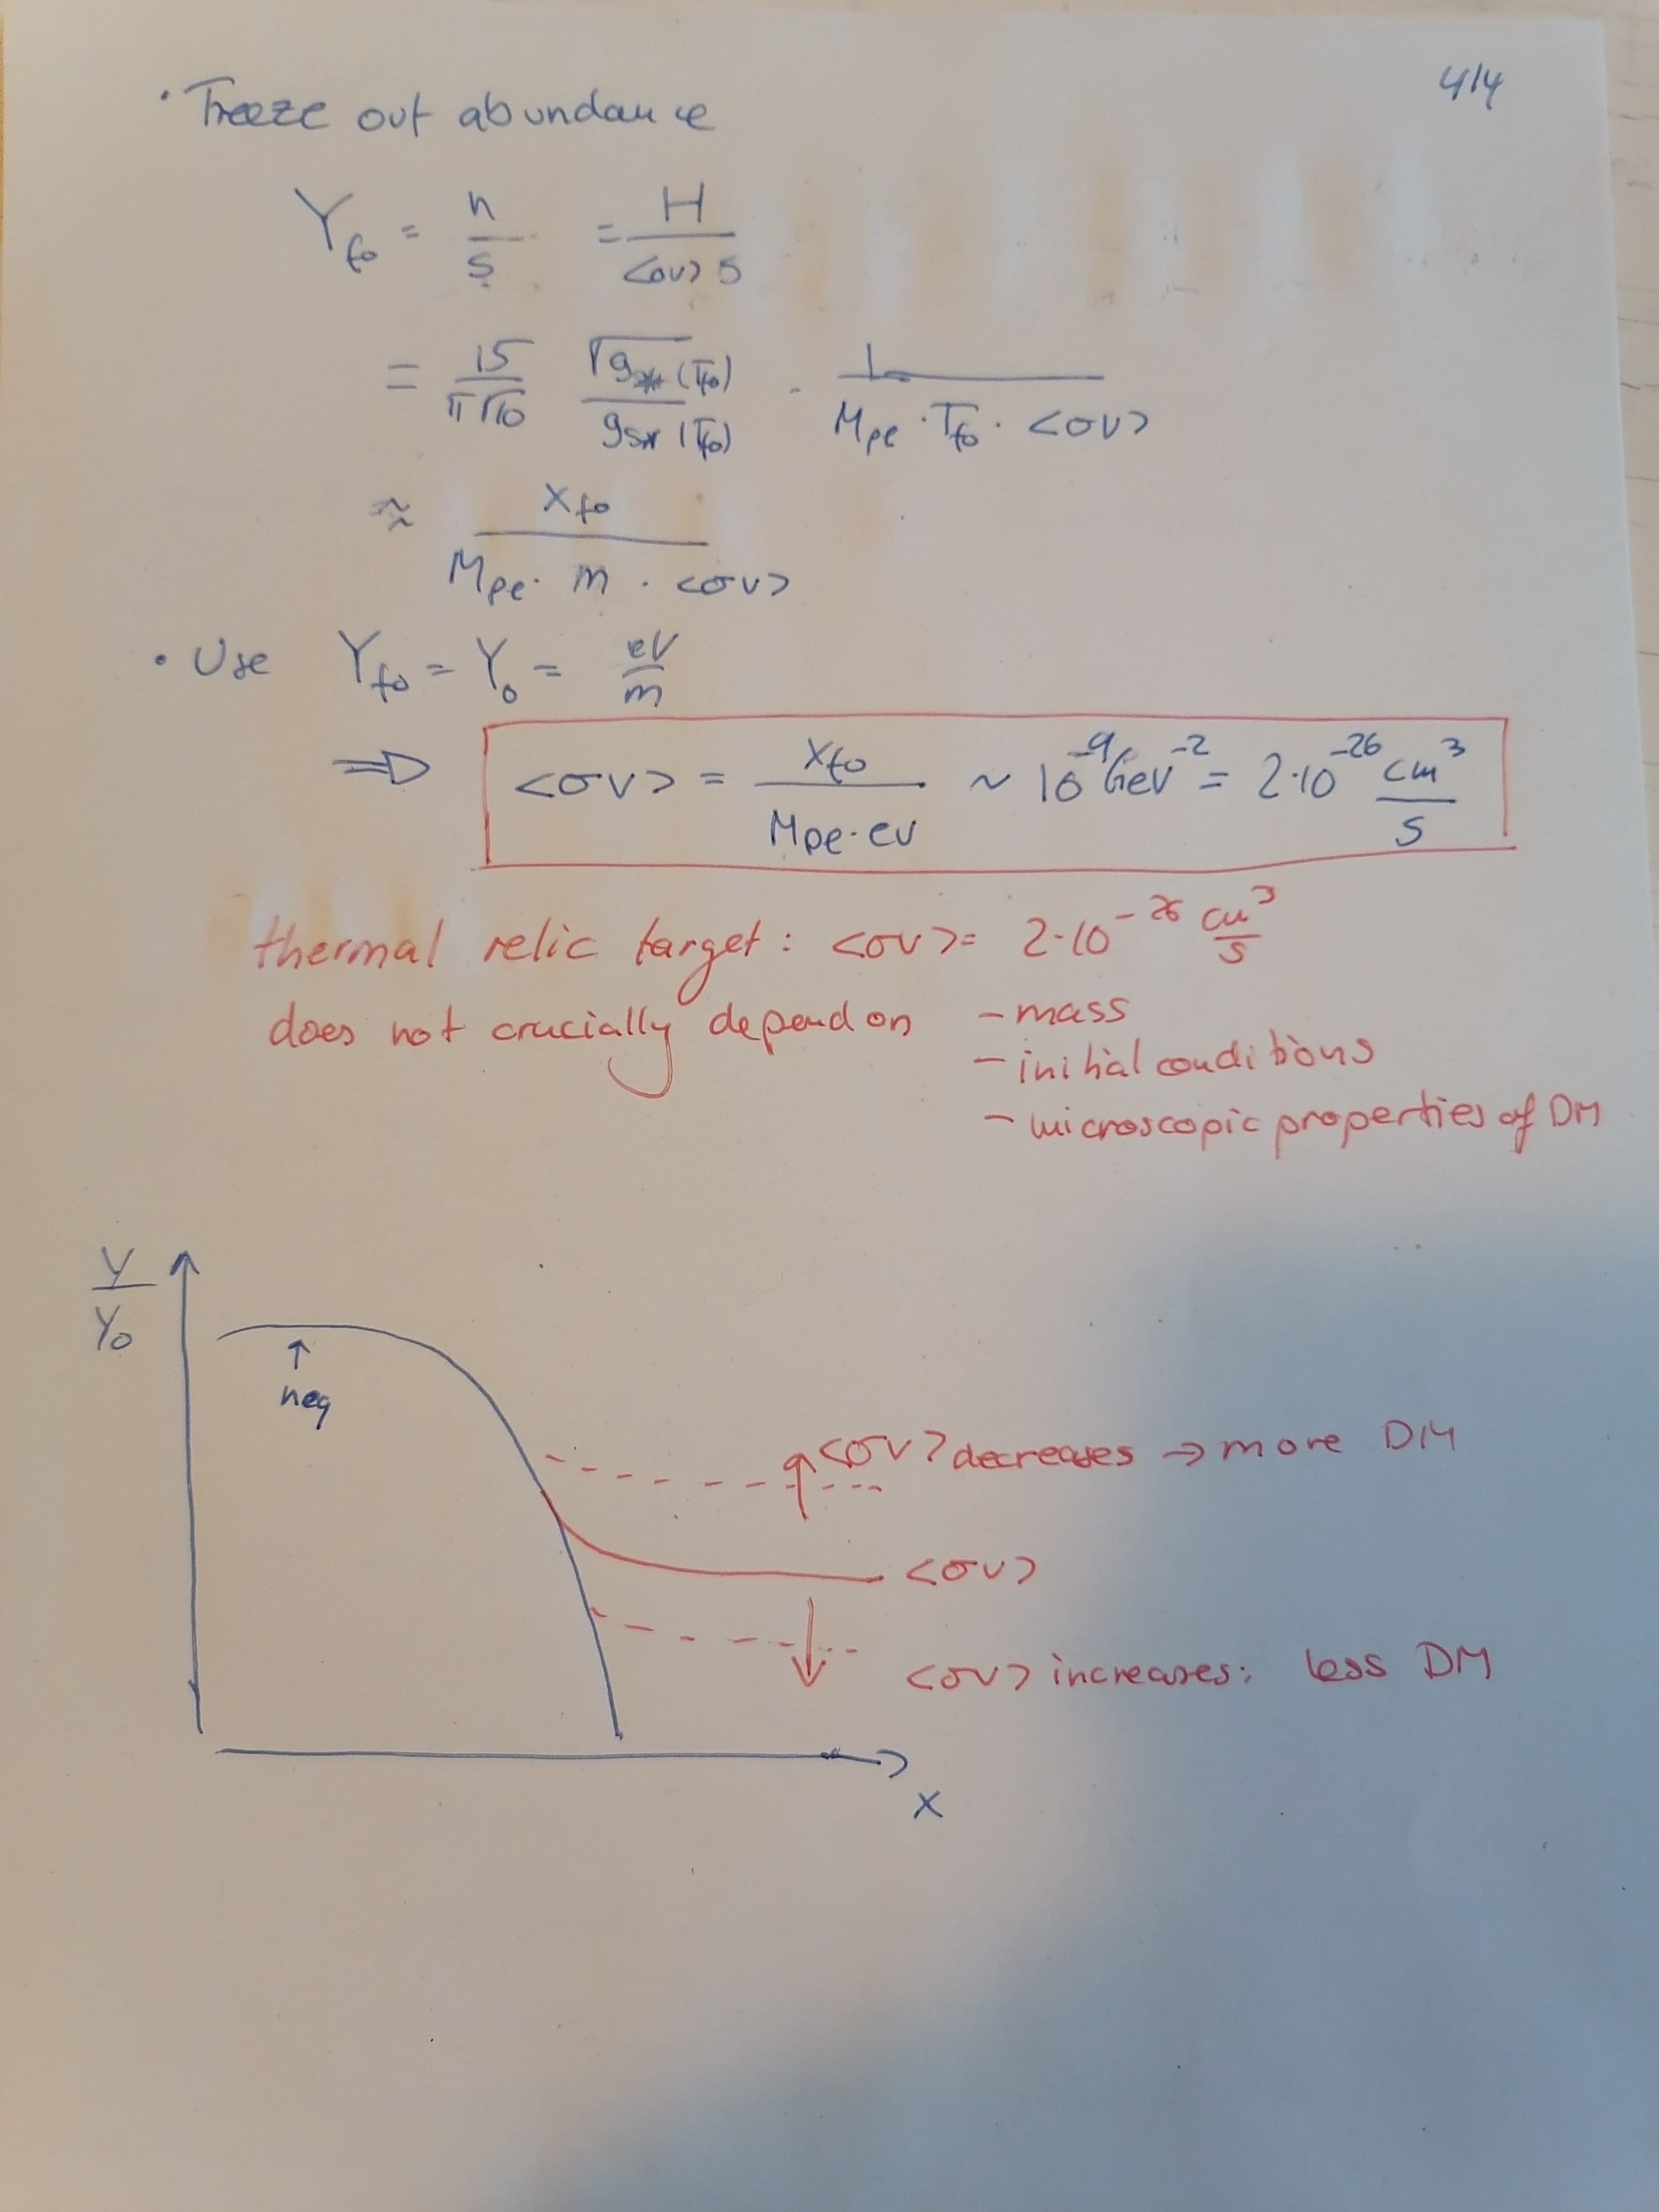 4/4
• Freeze out abundance
Y_fo = n/s = H/(<σv> s)
= 15/(π√10) · √g_*(T_fo)/g_s*(T_fo) · 1/(M_pl · T_fo · <σv>)
≈ x_fo/(M_pl · m · <σv>)
• Use Y_fo = Y_0 = eV/m
⇒ <σv> = x_fo/(M_pl · eV) ~ 10^-9 GeV^-2 = 2·10^-26 cm^3/s
thermal relic target: <σv> = 2·10^-26 cm^3/s
does not crucially depend on - mass
- initial conditions
- microscopic properties of DM
Y/Y_0
↑
neq
<σv> decreases → more DM
<σv>
<σv> increases: less DM
x